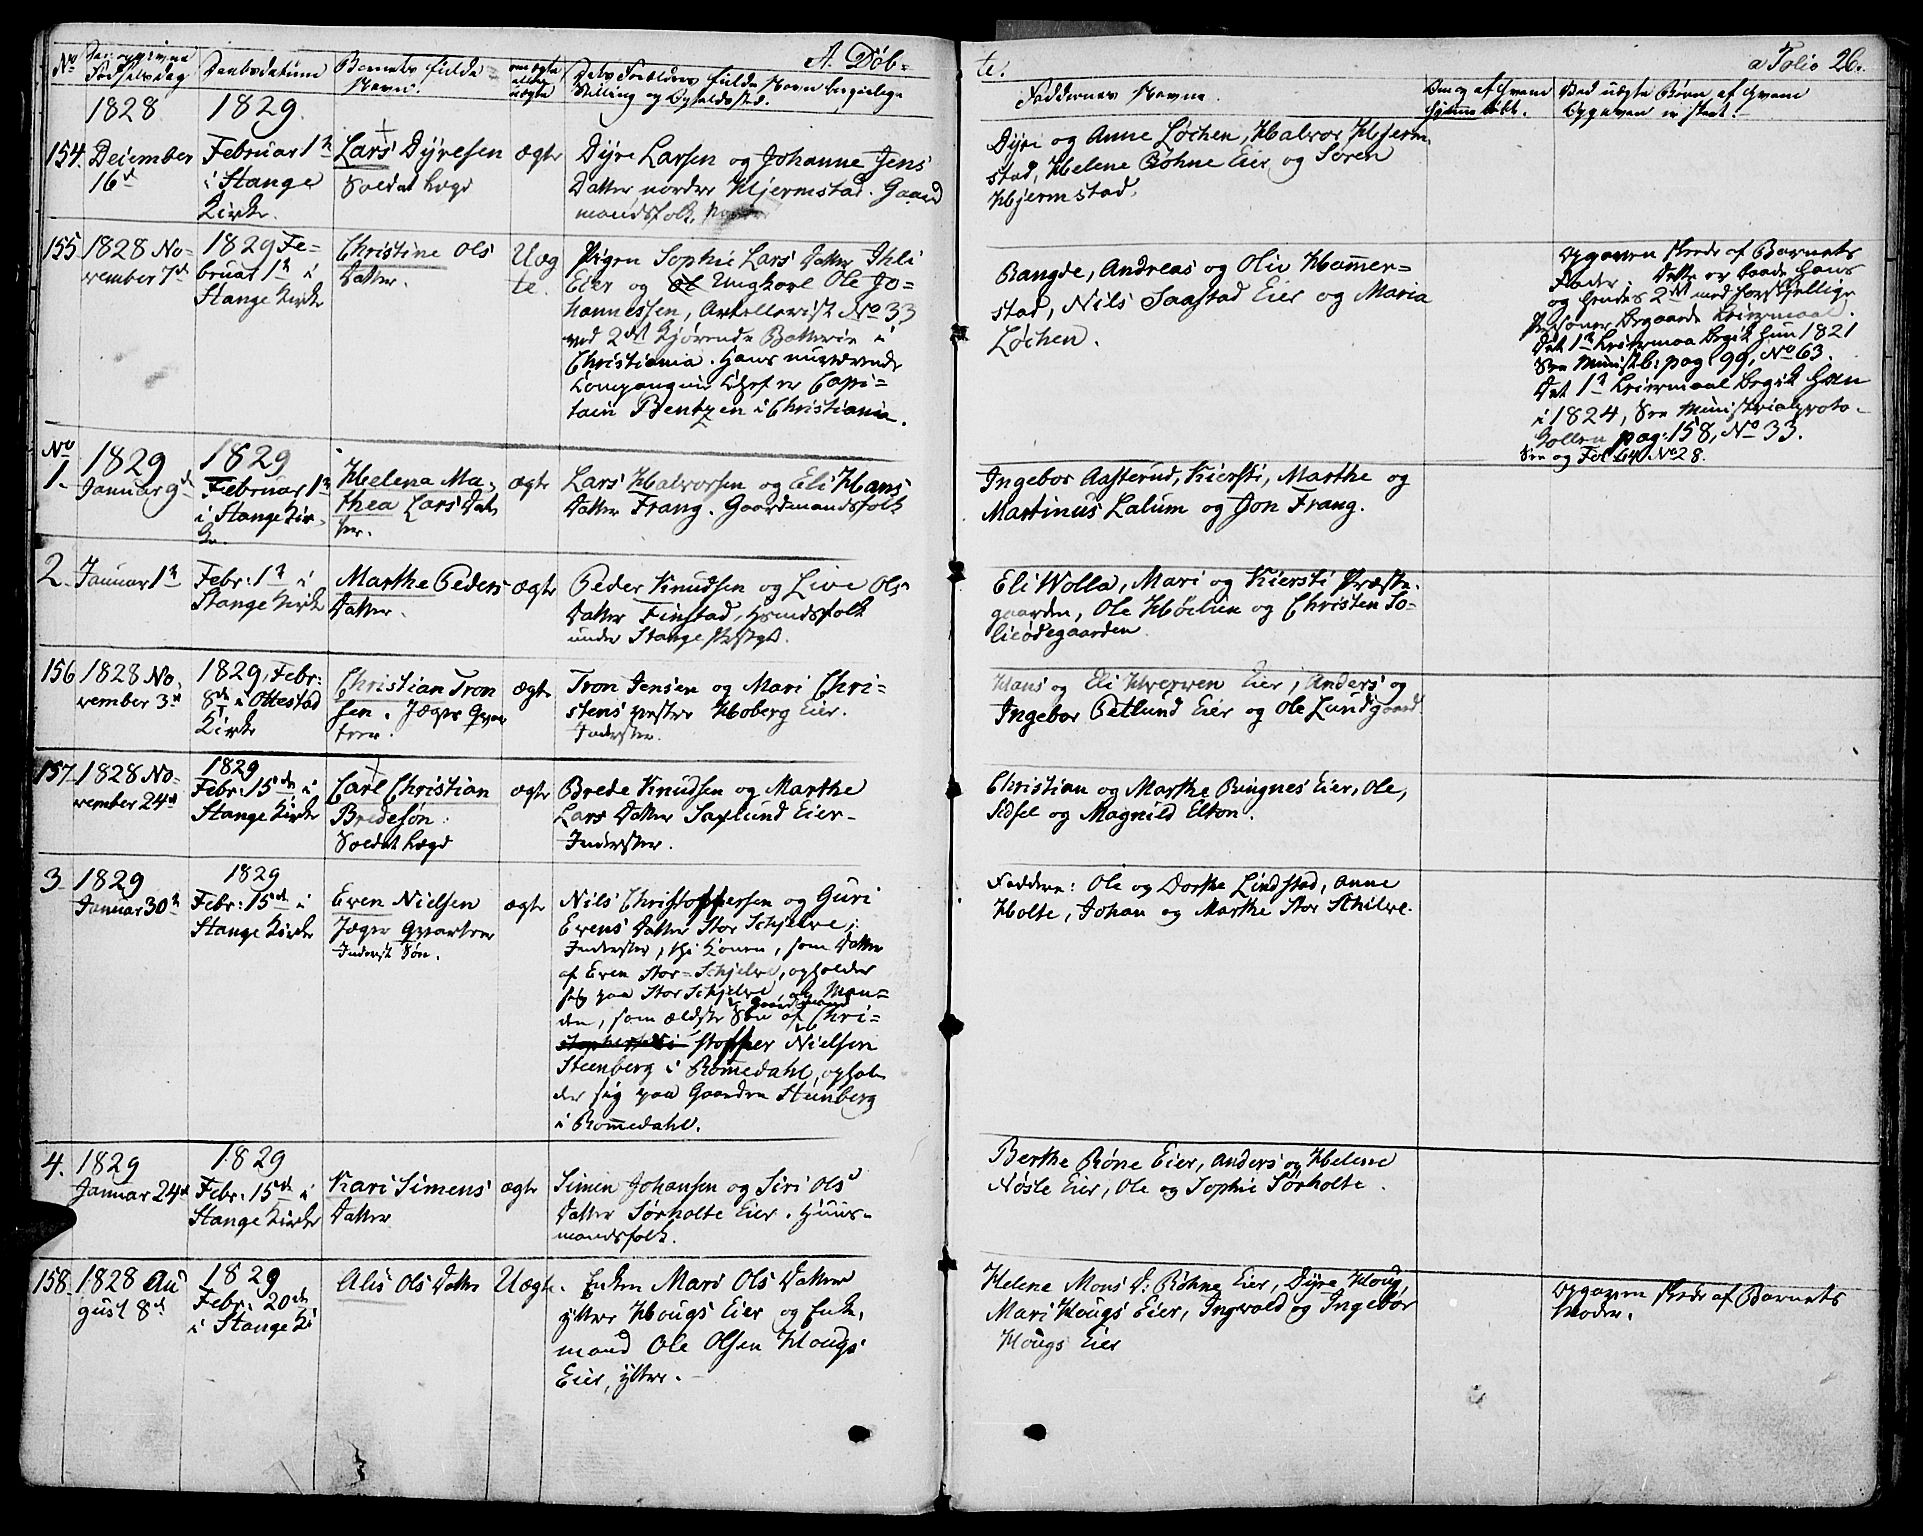 A. Døb-
te.
a Folio 26.
No
Den opgivne
Fødselsdag
Daabsdatum
Barnets fulde
Navn.
om ægte
eller
uægte
Dets Forældres fulde Navn borgerlige
Stilling og Opholdssted.
Faddernes Navne.
Om og af hvem
hjemmedøbt.
Ved uægte Børn af hvem
Opgaven er skeet.
1828
1829.
154.
December
16d
Februar 1n
i Stange
Kirke.
Lars Dyresen
Soldat Lægd
ægte
Dyre Larsen og Johanne Jens
Datter nordre Hjermstad. Gaard
mandsfolk.
Dyre og Anne Løchen, Halvor Hjerm-
stad, Helene Bøhne Eier og Søren
Hjermstad.
155
1828 No-
vember 7d
1829 Fe-
bruar 1n i
Stange Kirke
Christine Ols
Datter.
Uæg
te
Pigen Sophie Lars Datter Ihle
Eier og Ungkarl Ole Jo-
hannessen, Artellerist No 33
ved 2det kjørende Batterie i
Christiania. Hans nuværende
Compagnie Chef er Capi-
tain Bentzen i Christiania.
Bangde, Andreas og Oliv Hammer-
stad, Nils Saastad Eier og Maria
Løchen.
Opgaven skede af Barnets
Fader. Dette er baade hans
og hendes 2det med forskjellige
Personer begaaede Leiermaal.
Det 1n Leiermaal begik hun 1821
See Ministb: pag 99, No 63.
Det 1n Leiermaal begik han
i 1824, See Ministrialproto-
Collen pag: 158, No 33.
See og Fol 64 No 28.
No
1.
1829
Januar 9d
1829
Februar 1n
i Stange Kir-
ke.
Helena Ma-
thea Lars Dat-
ter.
ægte
Lars Halvorsen og Eli Hans
Datter Frang. Gaardmandsfolk
Ingebor Aasterud, Kiersti, Marthe og
Martinus Lalum og Jon Frang.
2
Januar 1n
Febr: 1n i
Stange Kirke
Marthe Peders
Datter.
ægte
Peder Knudsen og Live Ols
Datter Finstad, Huusfolk
under Stange Præstgd.
Eli Wolla, Mari og Kiersti Præste-
gaarden, Ole Høelien og Christen So-
lieødegaarden
156
1828 No-
vember 3n
1829, Febr:
8de i Ottestad
Kirke
Christian Tron
sen. Jæger Qvar
teer.
ægte
Tron Jensen og Mari Chri-
stens vestre Hoberg Eier.
Inderster.
Hans og Eli Hverven Eier, Anders og
Ingebor Petlund Eier og Ole Lundgaard
157
1828 No-
vember 24d
1829
Febr: 15de i
Stange Kirke
Carl Christian
Bredesøn.
Soldat Lægd
ægte
Brede Knudsen og Marthe
Lars Datter Saxlund Eier-
Inderster.
Christian og Marthe Ringnes Eier, Ole,
Sidsel og Magnild Elton.
3
1829
Januar 30n
1829
Febr: 15de i
Stange Kirke
Even Nielsen
Jæger Qvarteer
Inderst Søn.
ægte
Nils Christoffersen og Guri
Evens Datter Stor Schjelve;
Inderster, thi Konen, som Datter
af Even Stor-Schjelve, opholder
sig paa Stor Schjelve og Man-
den, som ældste Søn af Gaardmand Chri-
stoffer Nielsen
Steenberg i Rommedahl, ophol-
der sig paa Gaarden Steinberg
i Rommedahl.
Faddere: Ole og Dorthe Lindstad, Anne
Holte, Johan og Marthe Stor Schilve.
4.
1829
Januar 24d
1829
Febr: 15de i
Stange Kirke
Kari Simens
Datter
ægte
Simen Johansen og Siri Ols
Datter Sørholte Eier. Huus-
mandsfolk.
Berthe Bøne Eier, Anders og Helene
Nøsle Eier, Ole og Sophie Sørholte.
158
1828 Au
gust 8de
1829
Febr: 20de
i Stange Ki
Alis Ols Datter
Uægte.
Enken Mari Ols Datter
yttre Hougs Eier og Enke-
mand Ole Olsen Hougs
Eier, yttre.
Helene Mons D: Bøhne Eier, Dyre Houg
Mari Hougs Eier, Ingvold og Ingebor
Hougs Eier
Opgaven skede af Barnets
Moder.